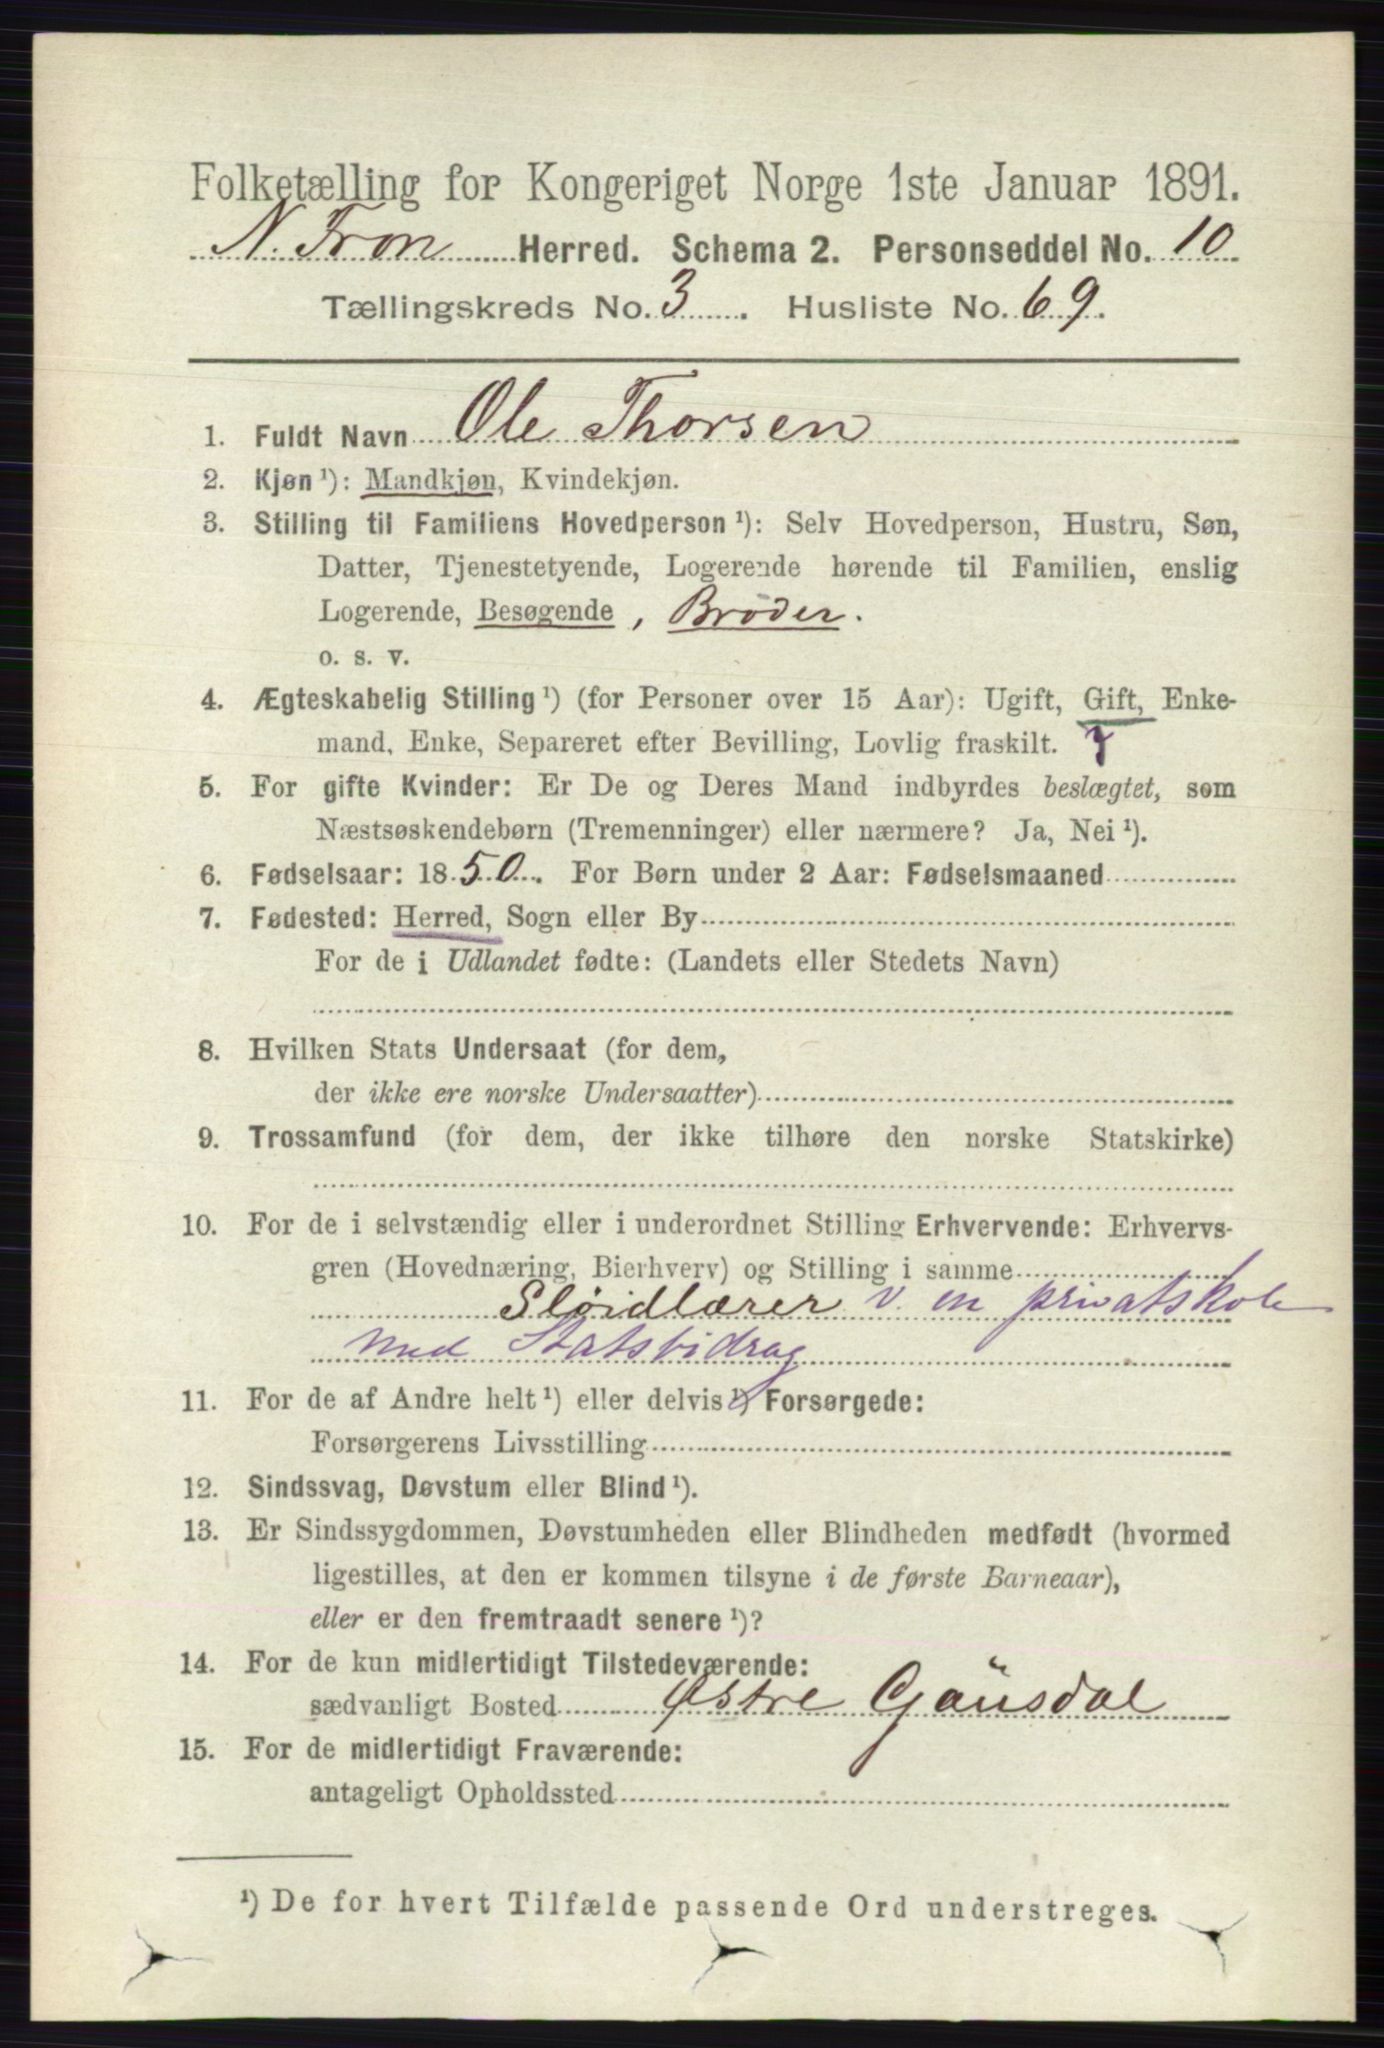 Folketælling for Kongeriget Norge 1ste Januar 1891.
N. Fron Herred. Schema 2. Personseddel No. 10
Tællingskreds No. 3. Husliste No. 69.
1. Fuldt Navn Ole Thorsen
2. Kjøn ¹): Mandkjøn, Kvindekjøn.
3. Stilling til Familiens Hovedperson ¹): Selv Hovedperson, Hustru, Søn,
Datter, Tjenestetyende, Logerende hørende til Familien, enslig
Logerende, Besøgende, Broder.
o. s. v.
4. Ægteskabelig Stilling ¹) (for Personer over 15 Aar): Ugift, Gift, Enke-
mand, Enke, Separeret efter Bevilling, Lovlig fraskilt.
5. For gifte Kvinder: Er De og Deres Mand indbyrdes beslægtet, som
Næstsøskendebørn (Tremenninger) eller nærmere? Ja, Nei ¹).
6. Fødselsaar: 1850. For Børn under 2 Aar: Fødselsmaaned
7. Fødested: Herred, Sogn eller By
For de i Udlandet fødte: (Landets eller Stedets Navn)
8. Hvilken Stats Undersaat (for dem,
der ikke ere norske Undersaatter)
9. Trossamfund (for dem, der ikke tilhøre den norske Statskirke)
10. For de i selvstændig eller i underordnet Stilling Erhvervende: Erhvervs-
gren (Hovednæring, Bierhverv) og Stilling i samme
Sløidlærer v. en privatskole
med Statsbidrag
11. For de af Andre helt ¹) eller delvis ¹) Forsørgede:
Forsørgerens Livsstilling
12. Sindssvag, Døvstum eller Blind ¹).
13. Er Sindssygdommen, Døvstumheden eller Blindheden medfødt (hvormed
ligestilles, at den er kommen tilsyne i de første Barneaar),
eller er den fremtraadt senere ¹)?
14. For de kun midlertidigt Tilstedeværende:
sædvanligt Bosted Østre Gausdal
15. For de midlertidigt Fraværende:
antageligt Opholdssted
¹) De for hvert Tilfælde passende Ord understreges.